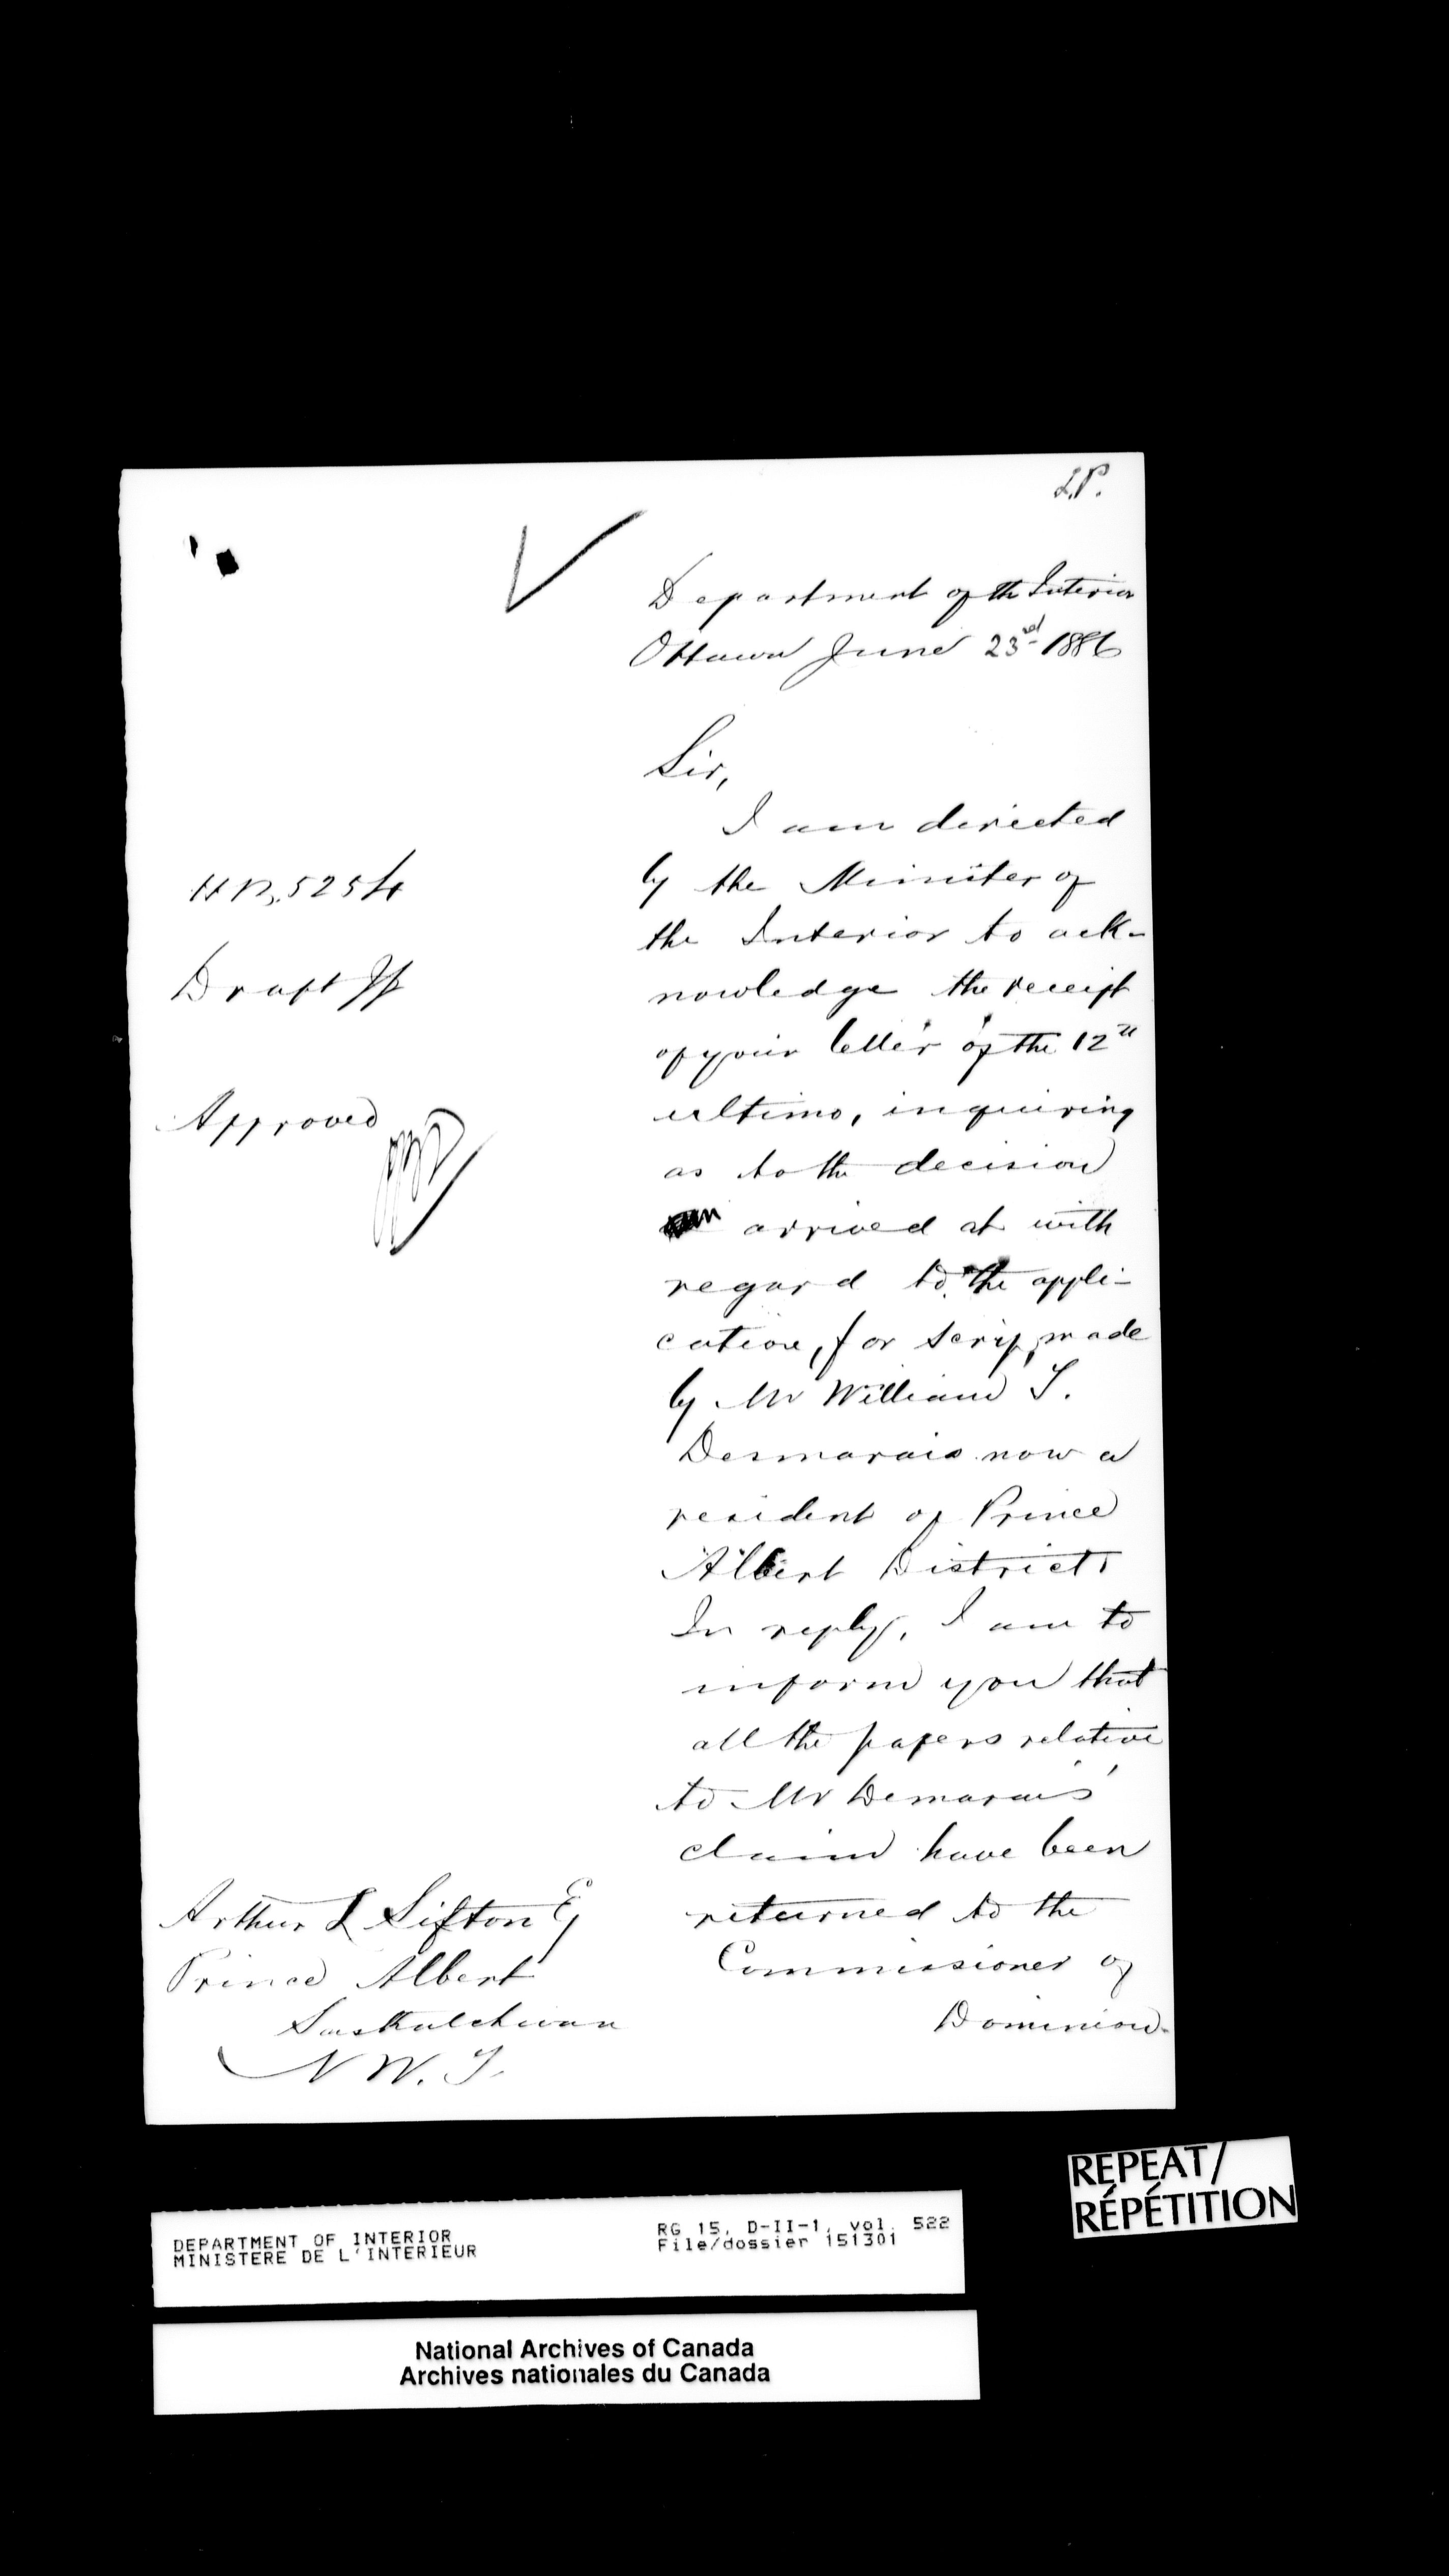 L.P.
Department of the Interior
Ottawa June 23rd 1886
Sir,
I am directed
by the Minister of
the Interior to ack-
nowledge the receipt
of your letter of the 12th
ultimo, inquiring
as to the decision
arrived at with
regard to the appli-
cation, for scrip, made
by Mr William T.
Desmarais now a
resident of Prince
Albert District.
In reply, I am to
inform you that
all the papers relative
to Mr Demarais'
claim have been
returned to the
Commissioner of
Dominion-
5254
Draft
Approved
Arthur L Sifton Eq
Prince Albert
Saskatchewan
N W. T.
REPEAT/
RÉPÉTITION
DEPARTMENT OF INTERIOR
MINISTERE DE L'INTERIEUR
RG 15, D-II-1, vol. 522
File/dossier 151301
National Archives of Canada
Archives nationales du Canada